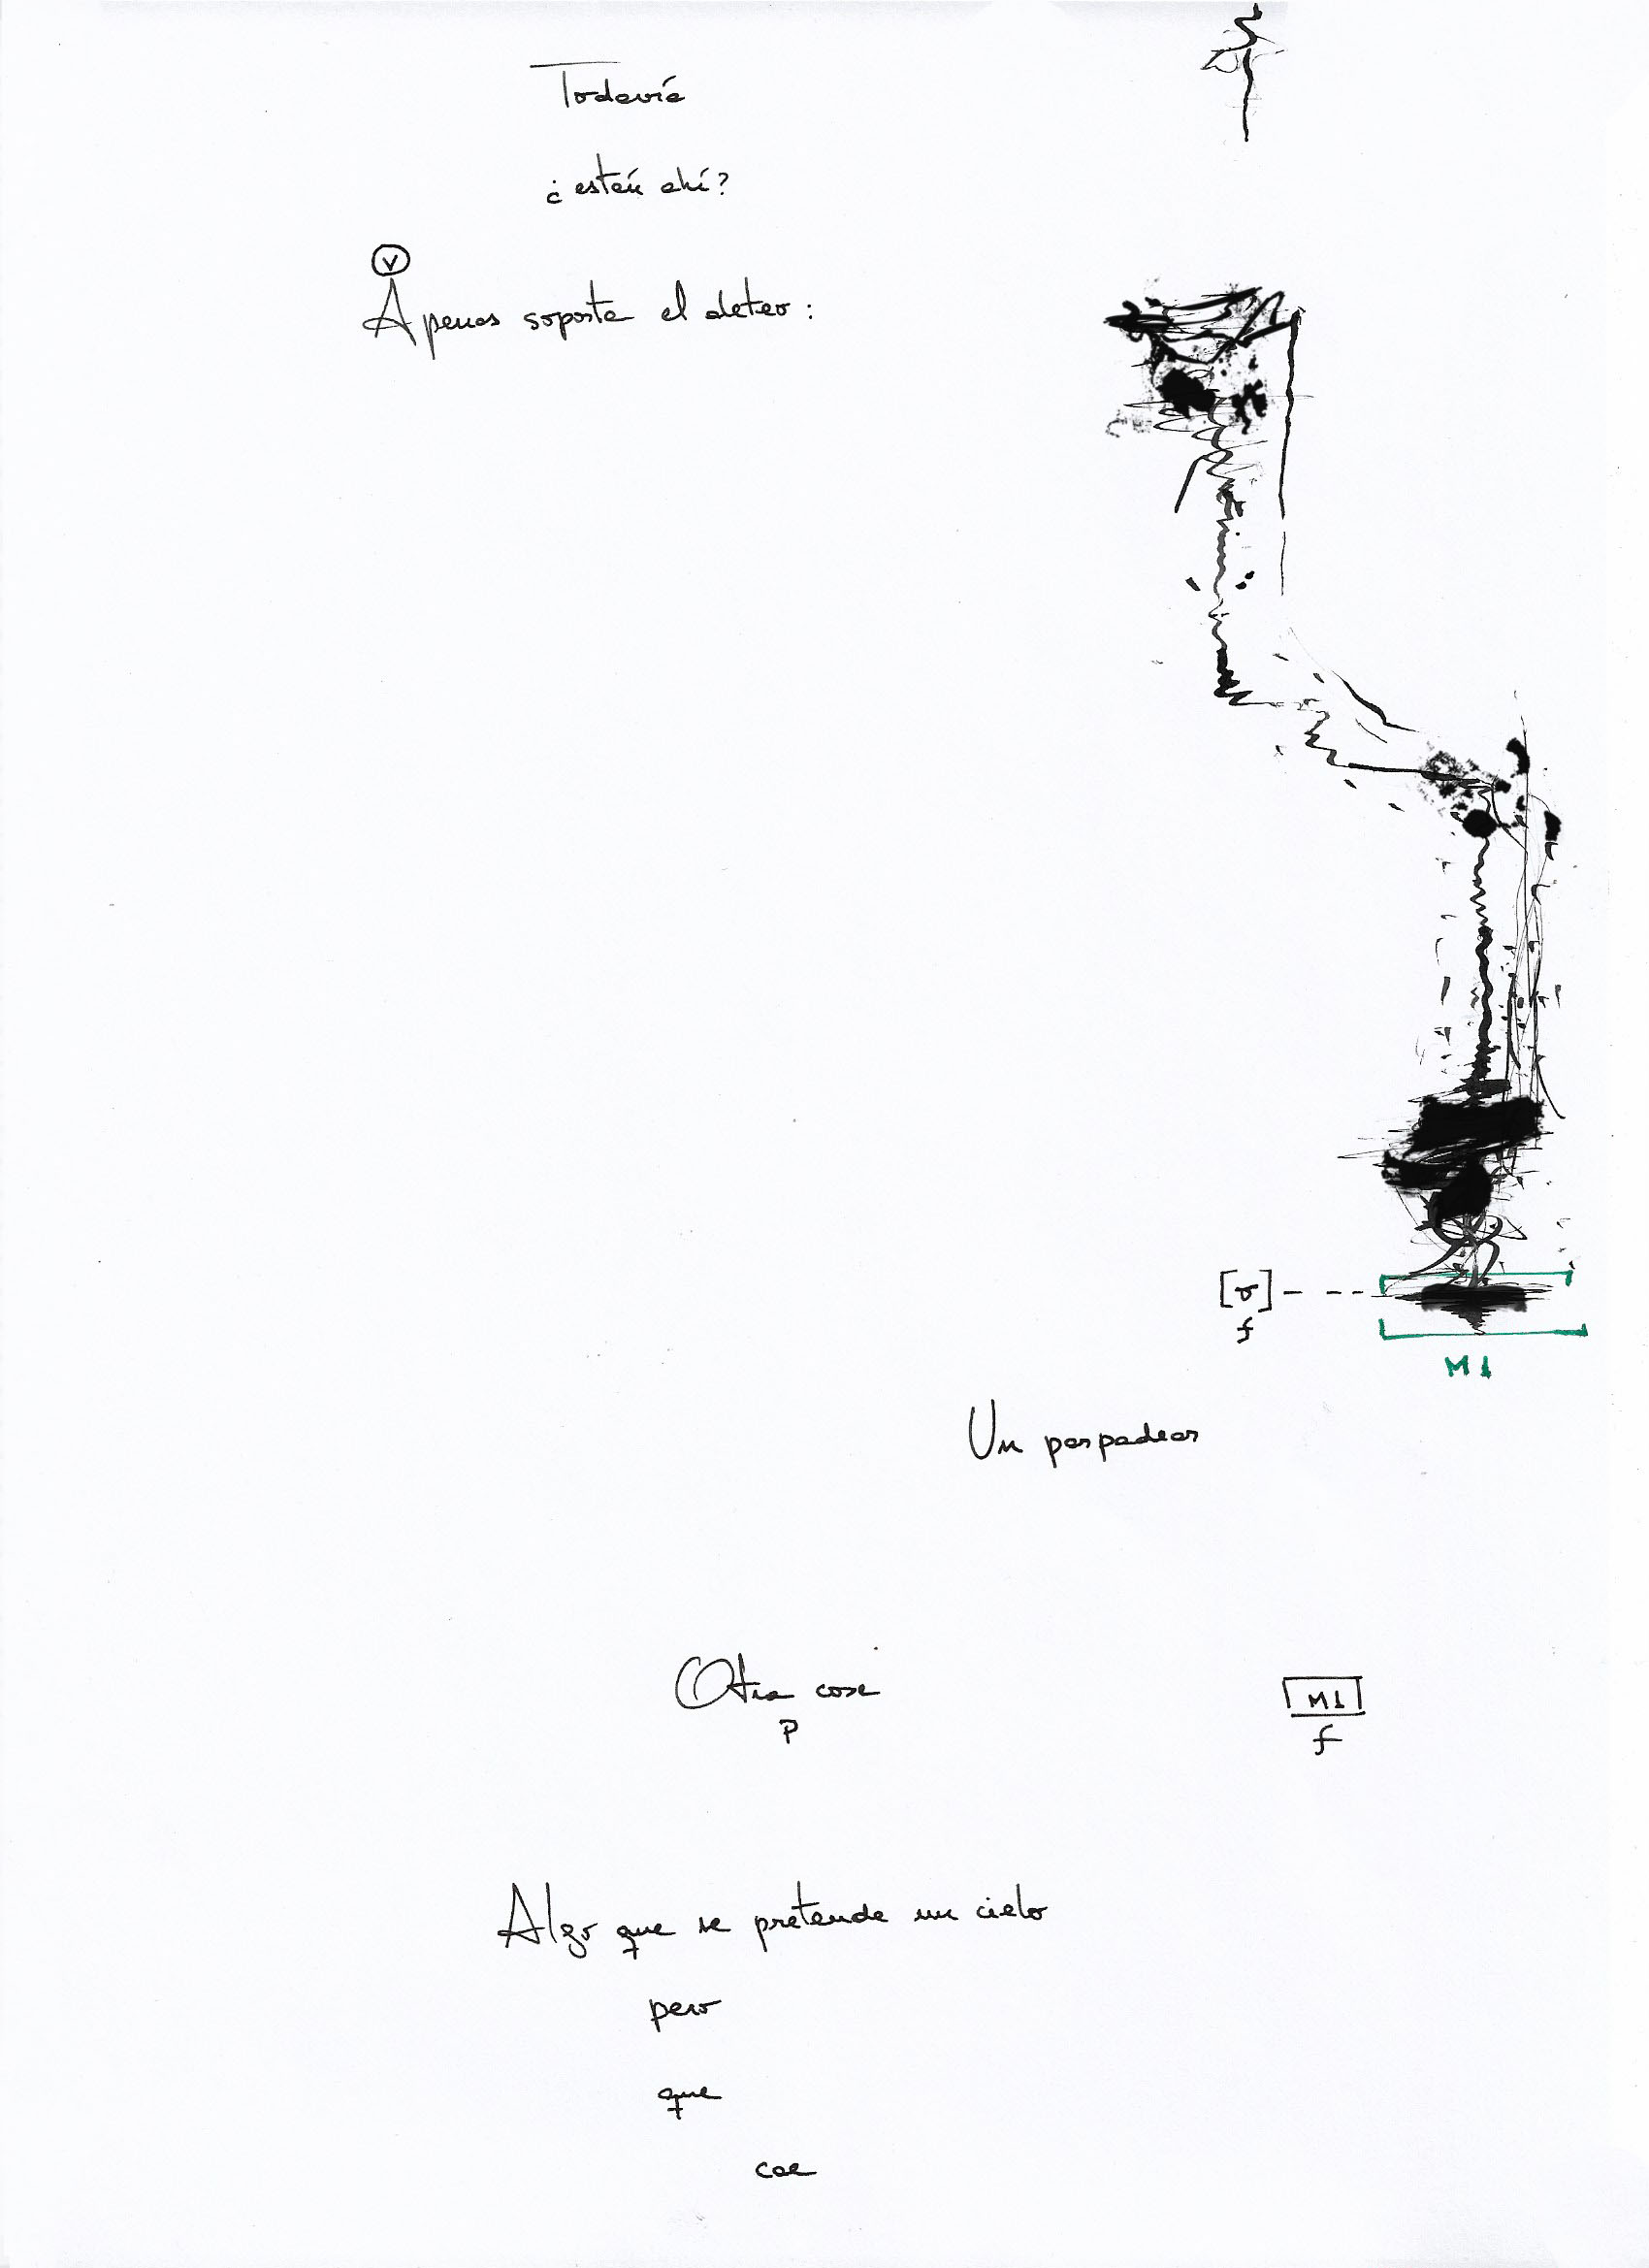 Todavía
¿están ahí?
V
Apenas soporta el aleteo:
[σ]
f
M1
Un parpadear
Otra cosa
P
M1
f
Algo que se pretende un cielo
pero
que
cae